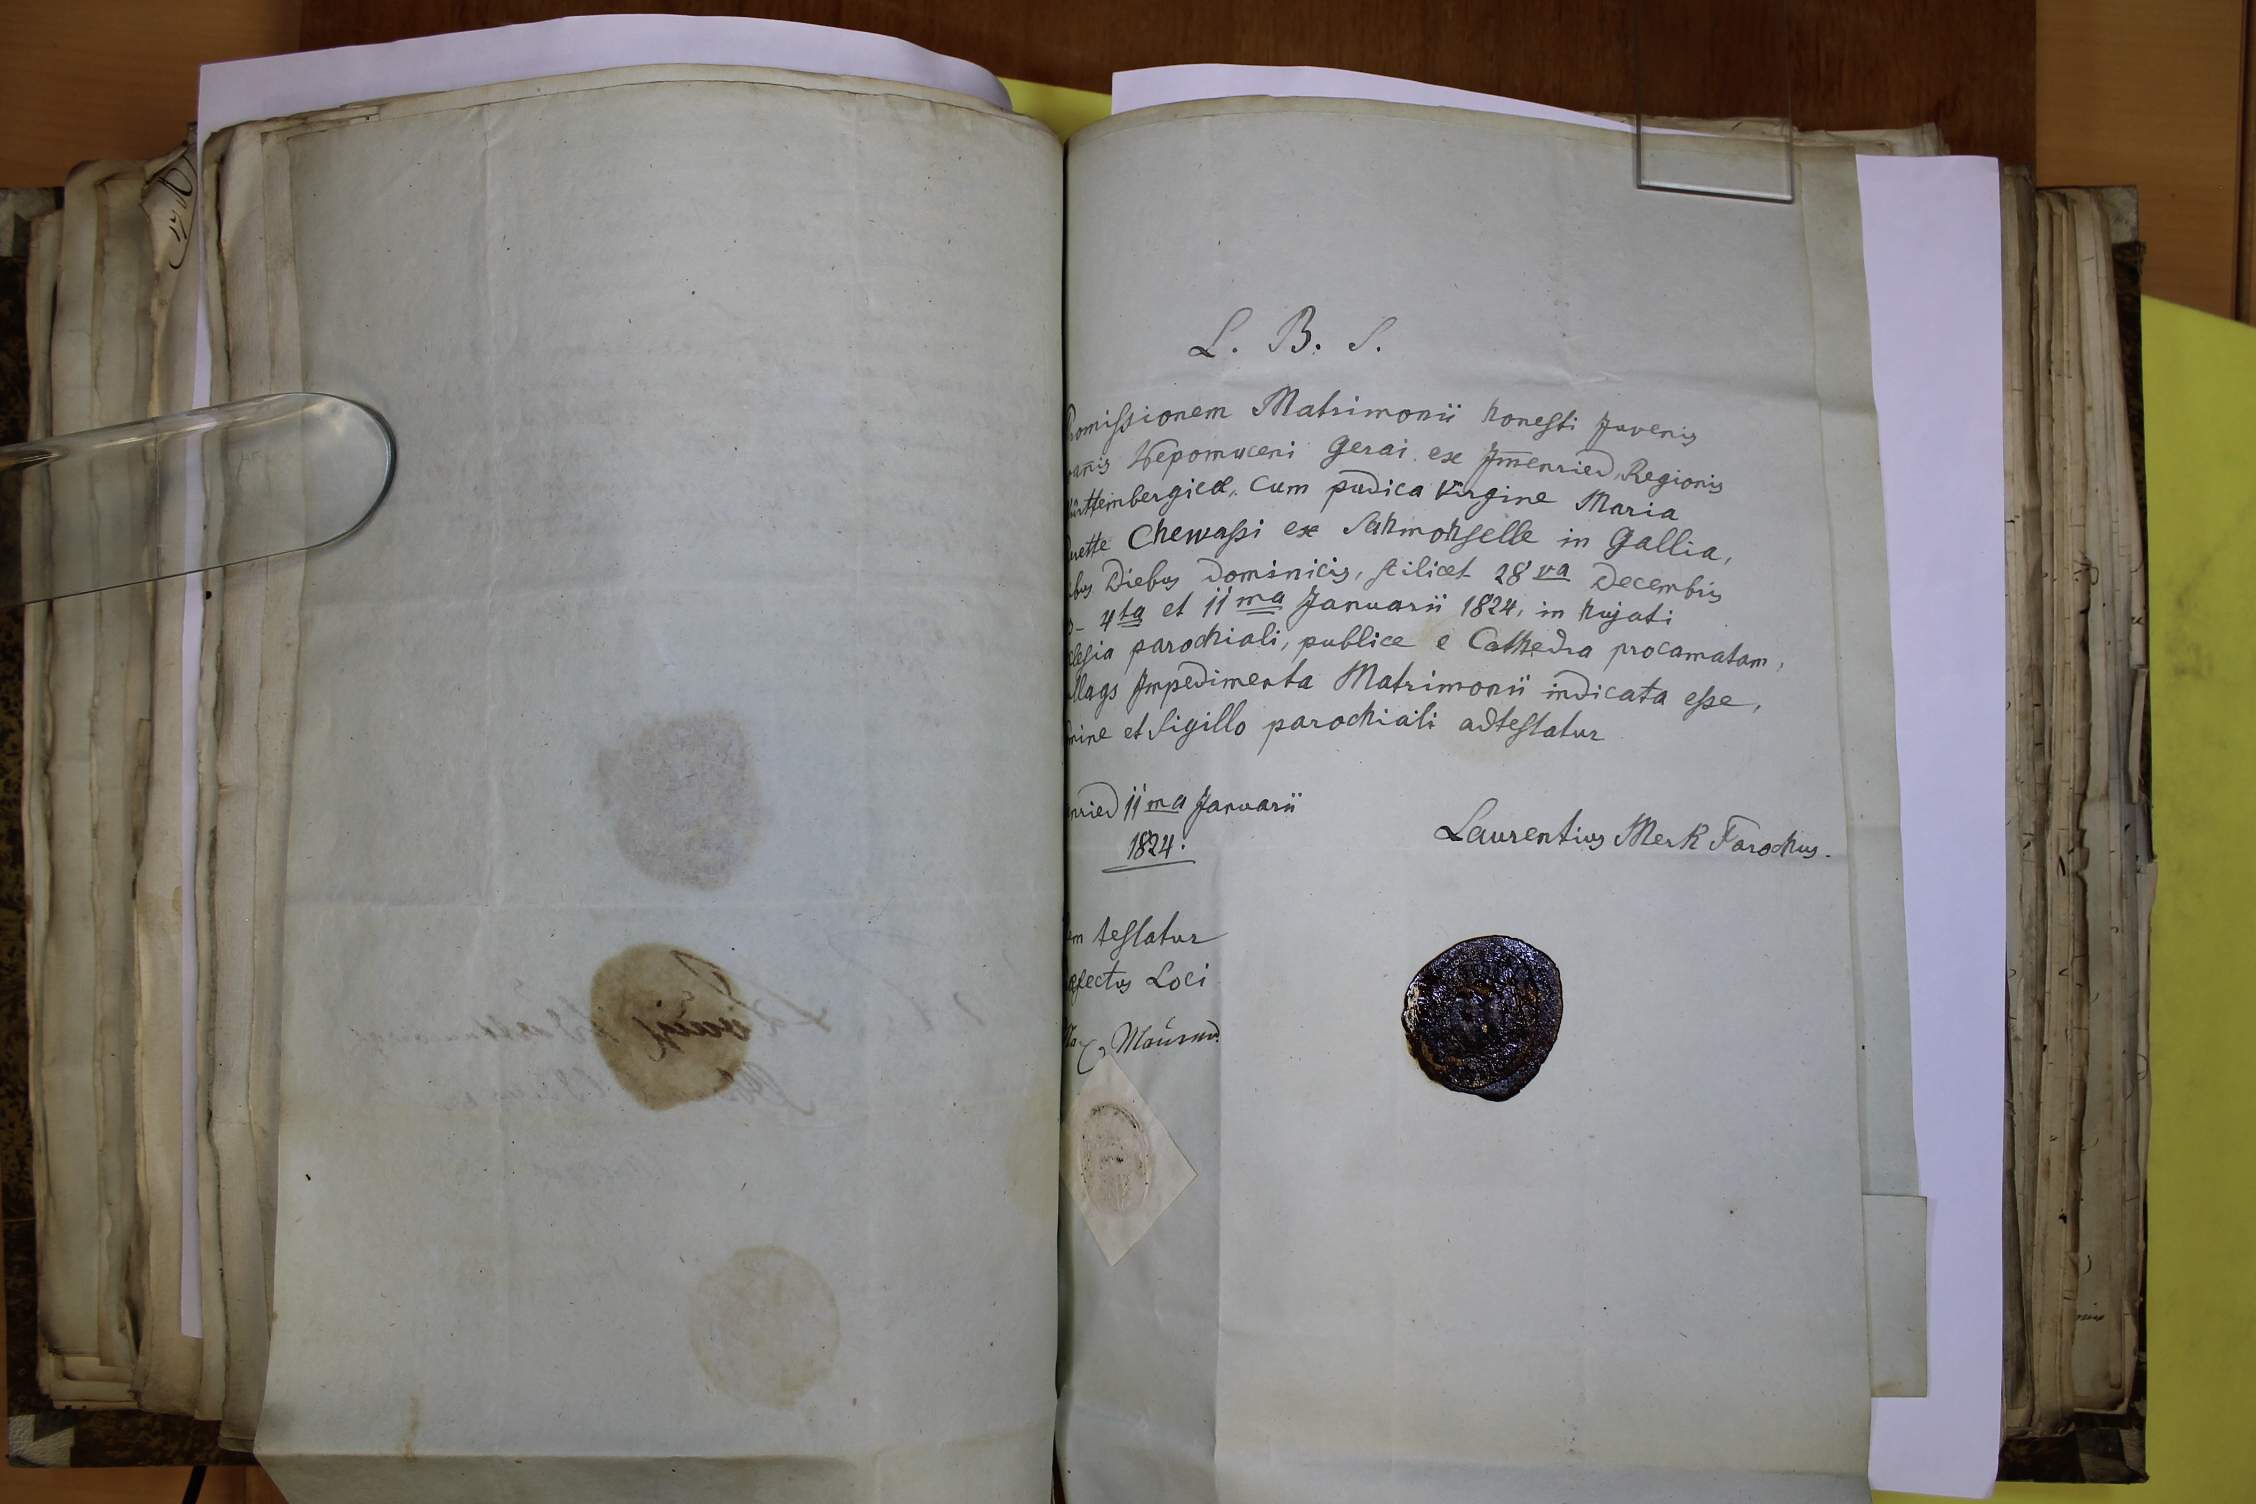 L. B. S.
romissionem Matrimonii honesti Juvenis
oan̄is Nepomuceni Gerai ex Jm̄enried, Regionis
ürttembergicæ, cum pudica Virgine Maria
uette Chewassi ex Sahmohselle in Gallia,
bus Diebus Dominicis, scilicet 28va Decembris
4ta et 11ma Januarii 1824, in hujati
clesia parochiali, publice e Cathedra procamatam,
llags Impedimenta Matrimonii indicata esse,
mine et Sigillo parochiali adtestatur
nried 11ma Januarii
1824.
Laurentius Merk Parochus.
em testatur
æfectus Loci